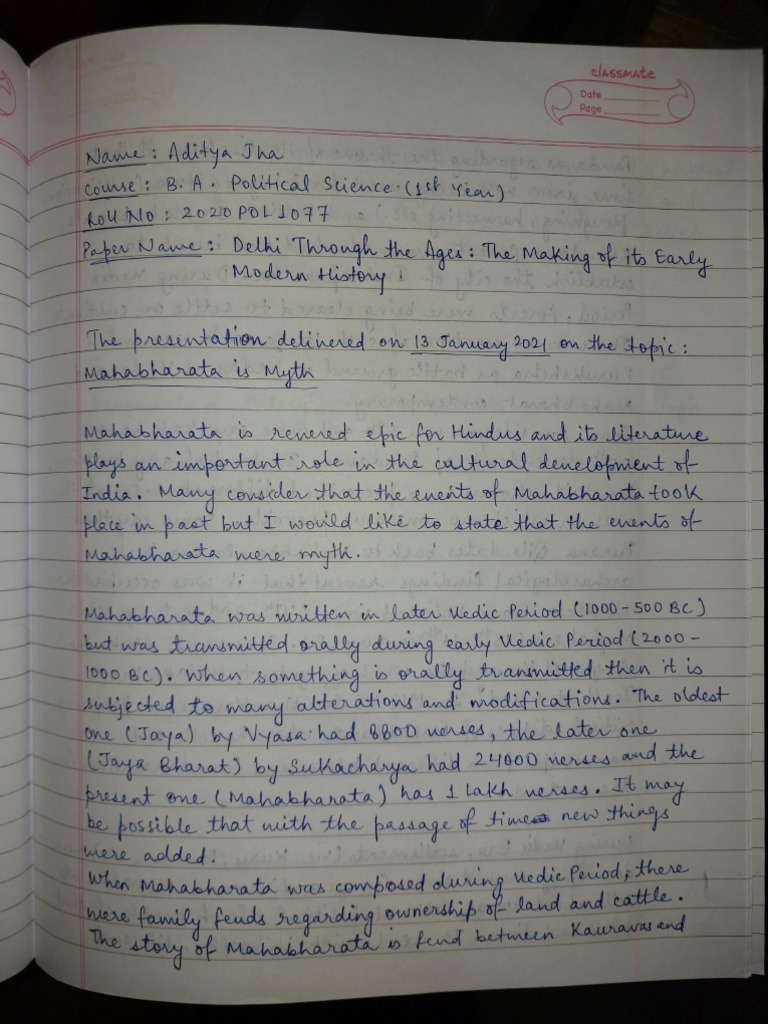 classmate
Date
Page
Name : Aditya Jha
Course : B. A. Political Science (1st Year)
Roll No : 2020POL1077
Paper Name : Delhi Through the Ages : The Making of its Early
Modern History
The presentation delivered on 13 January 2021 on the topic :
Mahabharata is Myth
Mahabharata is revered epic for Hindus and its literature
plays an important role in the cultural development of
India. Many consider that the events of Mahabharata took
place in past but I would like to state that the events of
Mahabharata were myth.
Mahabharata was written in later Vedic Period (1000-500 BC)
but was transmitted orally during early Vedic Period (2000-
1000 BC). When something is orally transmitted then it is
subjected to many alterations and modifications. The oldest
one (Jaya) by Vyasa had 8800 verses, the later one
(Jaya Bharat) by Sukacharya had 24000 verses and the
present one (Mahabharata) has 1 lakh verses. It may
be possible that with the passage of time new things
were added.
When Mahabharata was composed during Vedic Period, there
were family feuds regarding ownership of land and cattle.
The story of Mahabharata is feud between Kauravas and